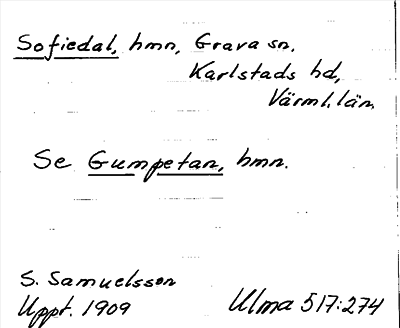 Sofiedal, hmn, Grava sn,
Karlstads hd,
Värml. län.
Se Gumpetan, hmn.
S. Samuelsson
Uppt. 1909
Ulma 517:274